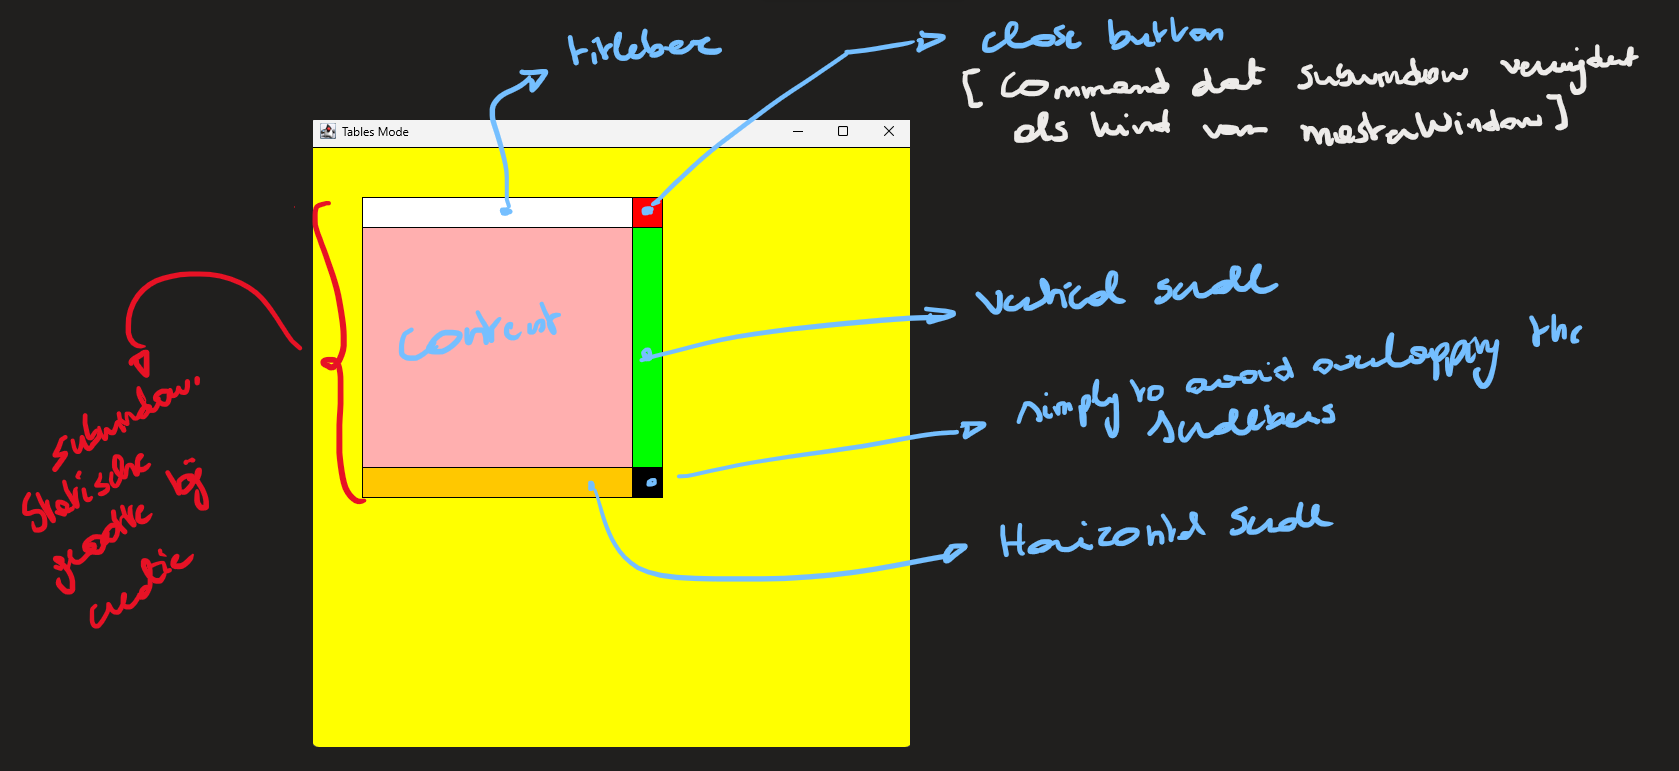 titlebar
close button
[ Command dat subwindow verwijdert
als kind van masterWindow]
Tables Mode
content
vertical scroll
simply to avoid overlapping the
scrollbars
Horizontal Scroll
subwindow:
Statische
grootte bij
creatie